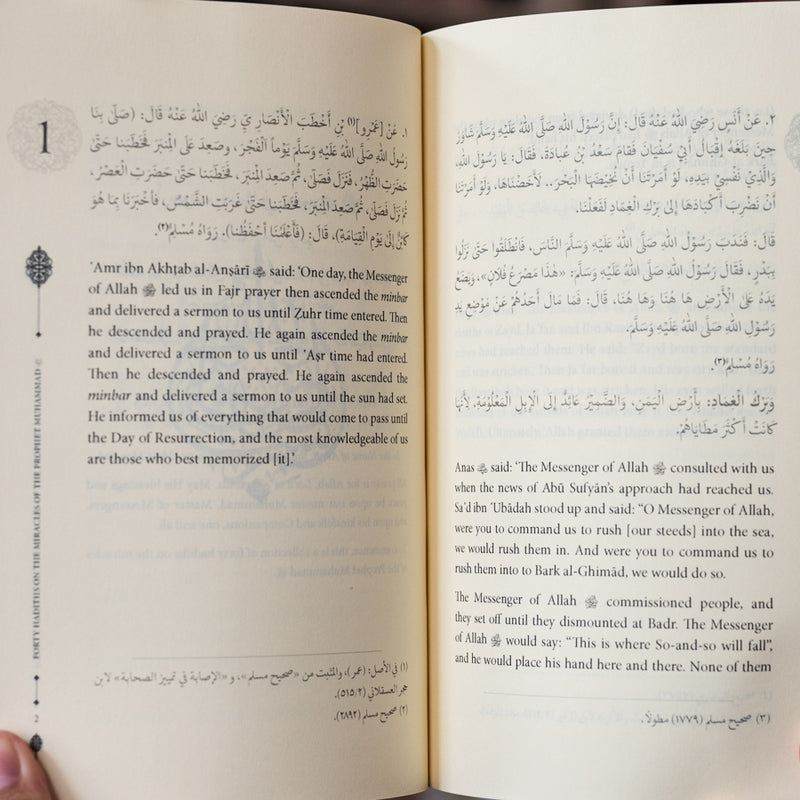 1
١. عَنْ [عَمْرِو](١) بْنِ أَخْطَبَ الْأَنْصَارِيِّ رَضِيَ اللهُ عَنْهُ قَالَ: (صَلَّى بِنَا
رَسُولُ اللهِ صَلَّى اللهُ عَلَيْهِ وَسَلَّمَ يَوْماً الْفَجْرَ، وَصَعِدَ عَلَى الْمِنْبَرِ فَخَطَبَنا حَتَّى
حَضَرَتِ الظُّهْرُ، فَنَزَلَ فَصَلَّى، ثُمَّ صَعِدَ الْمِنْبَرَ، فَخَطَبَنا حَتَّى حَضَرَتِ الْعَصْرُ،
ثُمَّ نَزَلَ فَصَلَّى، ثُمَّ صَعِدَ الْمِنْبَرَ، فَخَطَبَنا حَتَّى غَرَبَتِ الشَّمْسُ، فَأَخْبَرَنَا بِمَا هُوَ
كَائِنٌ إِلَى يَوْمِ الْقِيَامَةِ)، قَالَ: (فَأَعْلَمُنَا أَحْفَظُنَا). رَوَاهُ مُسْلِمٌ(٢).
'Amr ibn Akhṭab al-Anṣārī said: 'One day, the Messenger
of Allah ﷺ led us in Fajr prayer then ascended the minbar
and delivered a sermon to us until Ẓuhr time entered. Then
he descended and prayed. He again ascended the minbar
and delivered a sermon to us until 'Aṣr time had entered.
Then he descended and prayed. He again ascended the
minbar and delivered a sermon to us until the sun had set.
He informed us of everything that would come to pass until
the Day of Resurrection, and the most knowledgeable of us
are those who best memorized [it].'
(١) في الأصل: (عمر)، والمثبت من «صحيح مسلم»، و «الإصابة في تمييز الصحابة» لابن
حجر العسقلاني (٥١٥/٢).
(٢) صحيح مسلم (٢٨٩٢).
FORTY HADITHS ON THE MIRACLES OF THE PROPHET MUHAMMAD ﷺ
2
٢. عَنْ أَنَسٍ رَضِيَ اللهُ عَنْهُ قَالَ: إِنَّ رَسُوْلَ اللهِ صَلَّى اللهُ عَلَيْهِ وَسَلَّمَ شَاوَرَ
حِينَ بَلَغَهُ إِقْبَالُ أَبِي سُفْيَانَ فَقَامَ سَعْدُ بْنُ عُبَادَةَ، فَقَالَ: يَا رَسُوْلَ اللهِ،
وَالَّذِي نَفْسِيْ بِيَدِهِ، لَوْ أَمَرْتَنَا أَنْ نُخِيْضَهَا الْبَحْرَ.. لَأَخَضْنَاهَا، وَلَوْ أَمَرْتَنَا
أَنْ نَضْرِبَ أَكْبَادَهَا إِلَى بَرْكِ الْغِمَادِ لَفَعَلْنَا.
قَالَ: فَنَدَبَ رَسُوْلُ اللهِ صَلَّى اللهُ عَلَيْهِ وَسَلَّمَ النَّاسَ، فَانْطَلَقُوا حَتَّى نَزَلُوا
بِبَدْرٍ، فَقَالَ رَسُوْلُ اللهِ صَلَّى اللهُ عَلَيْهِ وَسَلَّمَ: «هٰذَا مَصْرَعُ فُلَانٍ»، وَيَضَعُ
يَدَهُ عَلَى الْأَرْضِ هَا هُنَا وَهَا هُنَا، قَالَ: فَمَا مَالَ أَحَدُهُمْ عَنْ مَوْضِعِ يَدِ
رَسُوْلِ اللهِ صَلَّى اللهُ عَلَيْهِ وَسَلَّمَ.
رَوَاهُ مُسْلِمٌ(٣).
وَبَرْكُ الْغِمَادِ: بِأَرْضِ الْيَمَنِ، وَالضَّمِيْرُ عَائِدٌ إِلَى الْإِبِلِ الْمَعْلُوْمَةِ، لِأَنَّهَا
كَانَتْ أَكْثَرَ مَطَايَاهُمْ.
Anas said: 'The Messenger of Allah ﷺ consulted with us
when the news of Abū Sufyān's approach had reached us.
Sa'd ibn 'Ubādah stood up and said: "O Messenger of Allah,
were you to command us to rush [our steeds] into the sea,
we would rush them in. And were you to command us to
rush them into to Bark al-Ghimād, we would do so.
The Messenger of Allah ﷺ commissioned people, and
they set off until they dismounted at Badr. The Messenger
of Allah ﷺ would say: "This is where So-and-so will fall",
and he would place his hand here and there. None of them
(٣) صحيح مسلم (١٧٧٩) مطولًا.